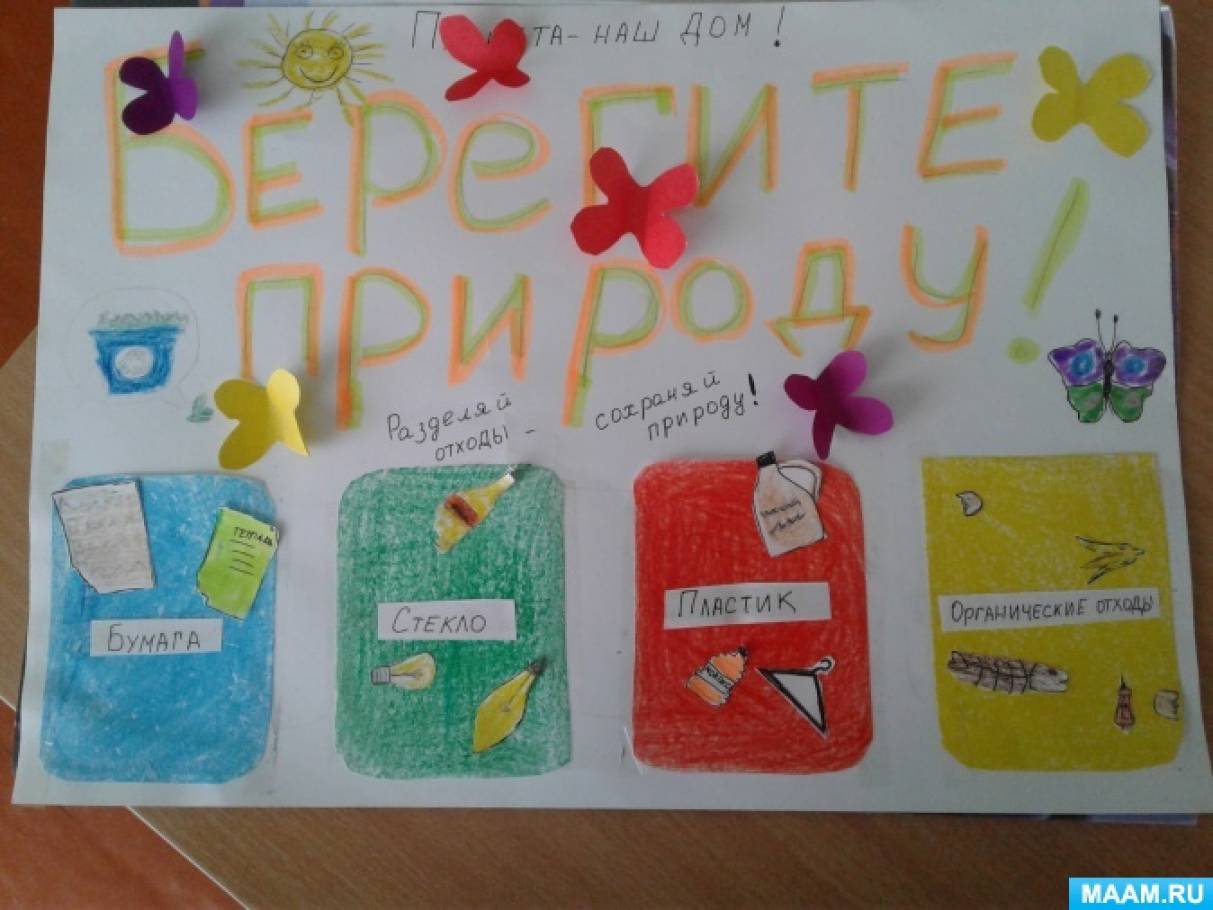 - НАШ ДОМ!
БЕРЕГИТЕ
ПРИРОДУ!
Разделяй
отходы -
сохраняй
природу!
ТЕТРАДЬ
БУМАГА
СТЕКЛО
ПЛАСТИК
ОРГАНИЧЕСКИЕ ОТХОДЫ
MAAM.RU